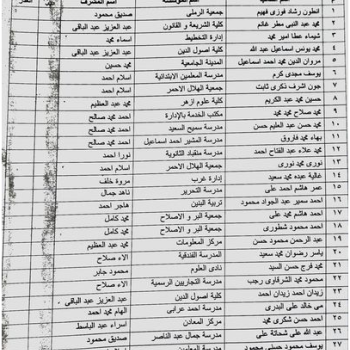 ١ انطون رشاد فوزى فهيم جمعية الرملى صديق محمود
٢ محمد عبد النبى مطر غانم كلية الشريعة و القانون عبد العزيز عبد الباقى
٣ شيماء عطا امير محمد إدارة التخطيط اسماء محمد
٤ محمد يونس اسماعيل عبد الله كلية اصول الدين عبد العزيز عبد الباقى
٥ مروان الدين محمد احمد اسماعيل المدينة الجامعية محمد حسين
٦ يوسف مجدى كرم مدرسة المعلمين الابتدائية اسلام احمد
٧ جون اشرف ذكرى ثابت جمعية الهلال الاحمر اسلام احمد
٨ حسين محمد عبد الكريم كلية علوم ازهر محمد عبد العظيم
٩ محمد صلاح محمد مكتب الخدمة بالإدارة احمد محمد صالح
١٠ محمد حسن عبد العليم حسن مدرسة سميح السعيد احمد محمد صالح
١١ بهاء محمد فاروق مدرسة المشير احمد اسماعيل احمد محمد صالح
١٢ محمد علاء عبد الفتاح احمد مدرسة منقباد الثانوية نورا احمد
١٣ محمد نورى محمد نورى جمعية الهلال الاحمر اسلام احمد
١٤ غالية عبده محمد سعيد إدارة غرب مروة خلف
١٥ عمر هاشم احمد على مدرسة التحرير ناهد جمال
١٦ احمد سمير عبد الجواد محمود تربية البنين هاجر احمد
١٧ احمد هاشم محمد على جمعية البر و الاصلاح محمد كامل
١٨ احمد محمود شطورى جمعية البر و الاصلاح محمد كامل
١٩ عبد الرحمن محمود حسن مركز المعلومات محمد عبد العظيم
٢٠ ياسر رضوان محمد سعيد المدرسة الفندقية الاء صلاح
٢١ محمد فرج حسن السيد نادى العلوم محمود جابر
٢٢ محمود محمد الشرقاوى رجب مدرسة التجاريين الرسمية الاء صلاح
٢٣ زيدان احمد زيدان احمد كلية اصول الدين عبد العزيز عبد الباقى
٢٤ مى خالد على البدرى مدرسة احمد عرابى الهام محمد احمد
٢٥ احمد حسن شكرى محمد مركز المعادن اسراء عبد الباسط
٢٦ عبد الله على شحاتة على مدرسة جمال عبد الناصر صديق محمود
٢٧ يوسف محمود حسنى محمد